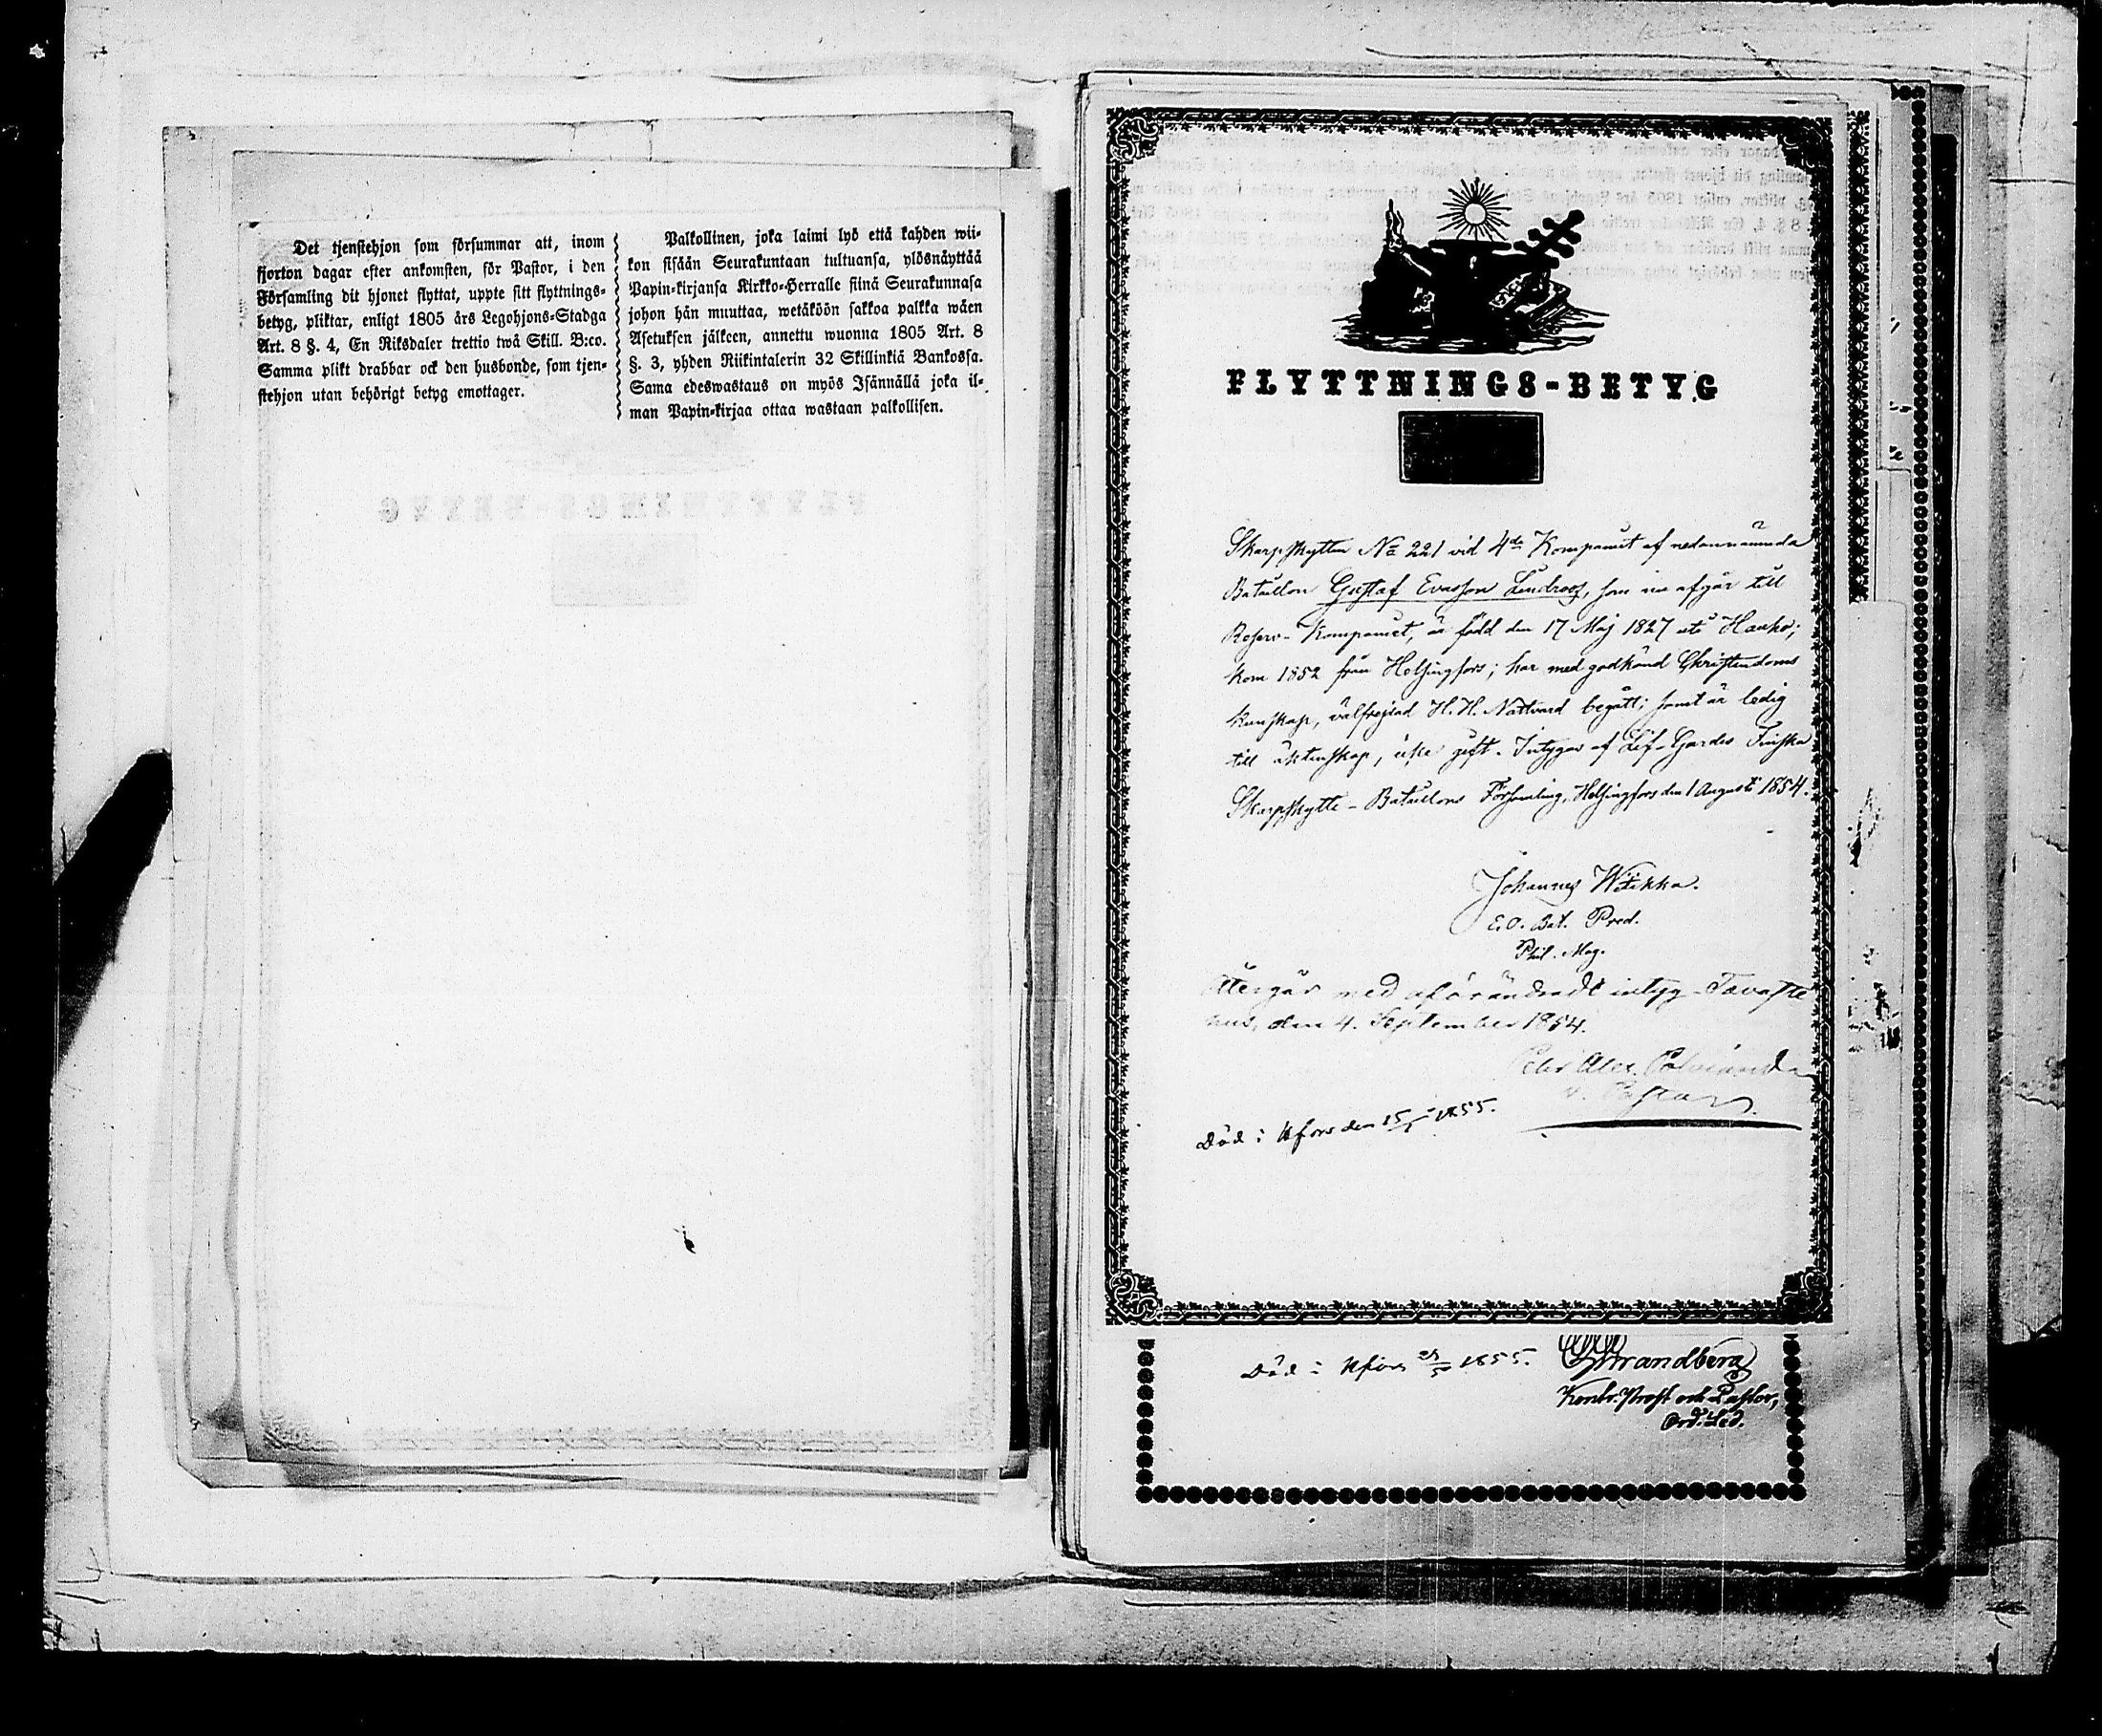 Det tjenstehjon som försummar att, inom
fjorton dagar efter ankomsten, för Pastor, i den
Församling dit hjonet flyttat, uppte sitt flyttnings-
betyg, pliktar, enligt 1805 års Legohjons-Stadga
Art. 8 §. 4, En Riksdaler trettio twå Skill. B:co.
Samma plikt drabbar ock den husbonde, som tjen-
stehjon utan behörigt betyg emottager.
Palkollinen, joka laimi lyö että kahden wii-
kon sisään Seurakuntaan tultuansa, ylösnäyttää
Papin-kirjansa Kirkko-Herralle siinä Seurakunnasa
johon hän muuttaa, wetäköön sakkoa palkka wäen
Asetuksen jälkeen, annettu wuonna 1805 Art. 8
§. 3, yhden Riikintalerin 32 Skillinkiä Bankossa.
Sama edeswastaus on myös Isännällä joka il-
man Papin-kirjaa ottaa wastaan palkollisen.
FLYTTNINGS-BETYG
Skarpskytten No 221 vid 4de Kompaniet af nedannämnda
Bataillon Gustaf Evasson Lindroos, som nu afgår till
Reserv-Kompaniet, är född den 17 Maj 1827 uti Hauho;
kom 1852 från Helsingfors; har med godkänd Christendoms
kunskap, välfrejdad H. H. Nattvard begått; samt är ledig
till äktenskap, icke gift. Intygar af Lif-Gardes Finska
Skarpskytte-Bataillons Församling, Helsingfors den 1 Augusti 1854.
Johannes Witikka.
E.O. Bat. Pred.
Phil. Mag.
Återgår med oförändradt intyg. Tavaste
hus, den 4. September 1854.
Petr Alex.
v. Pastor.
Död i Hfors den 1855.
Död i Hfors 1855. Strandberg
Kontr. Prost och Pastor,
Ord. Led.